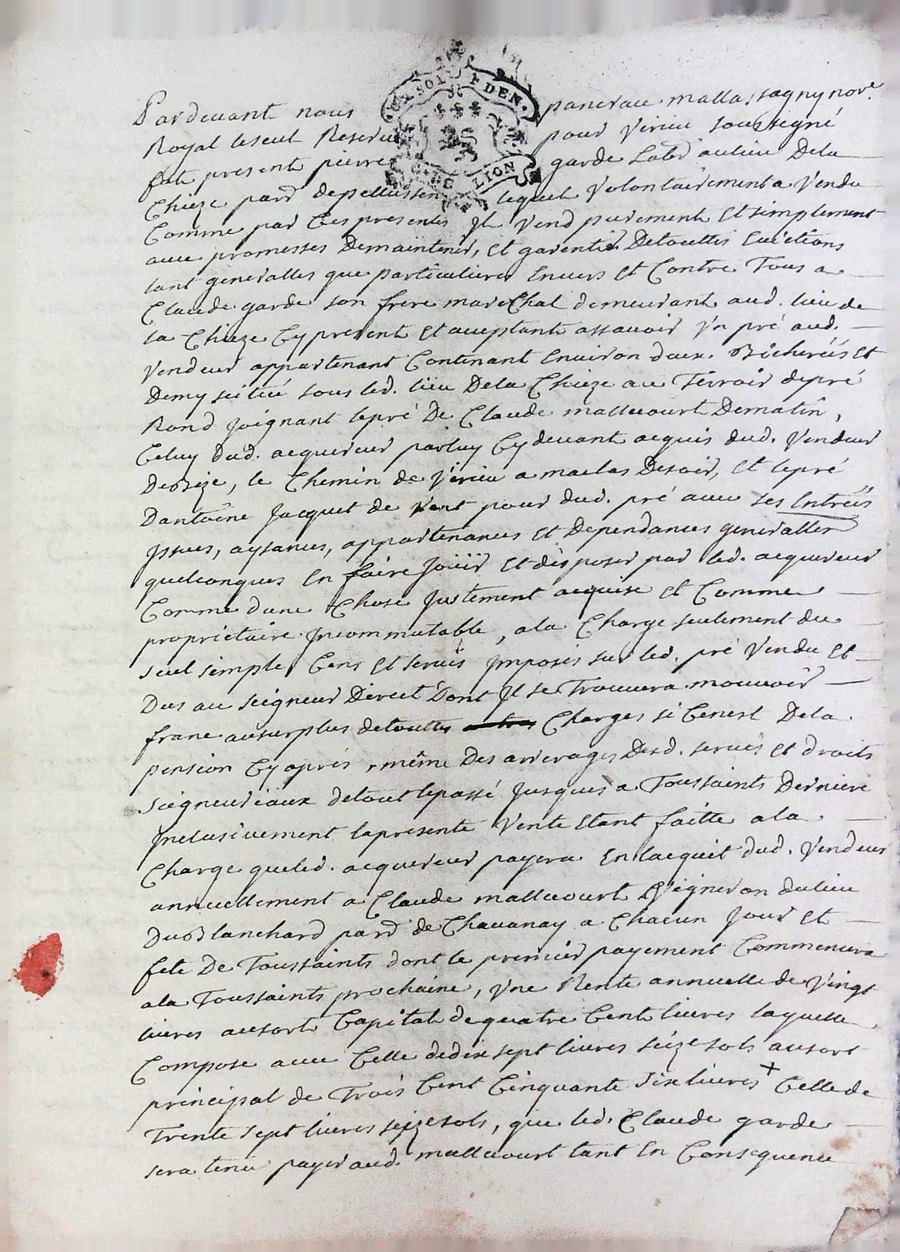 SOL P DEN.
G. LION
Pardevant nous pancrace mallassagny nore.
Royal le seul Reservé pour Verieu soussigné
fut present pierre garde Labr au lieu Dela
Chieze parr depellussen lequel volontairement a Vendu
Comme par Ces presentes Il Vend purement Et simplement
avec promesses De maintenir, Et garentir De touttes Evictions
tant generalles que particulieres Envers Et Contre Tous a
Claude garde son frere marechal demeurant aud. lieu de
la Chieze Cy present Et aceptant assavoir Vn pré aud.
Vendeur appartenant Contenant Environ deux Bicherées Et
Demy scitué sous led. lieu Dela Chieze au Terroir de pré
Rond Joignant le pré De Claude mallecourt De matin,
Celuy dud. acquereur par luy Cy devant acquis dud. Vendeur
De Bize, le Chemin de Verieu a maclas De soir, Et le pré
Dantoine Jacquet de Vent pour dud. pré avec ses Entréés
Issues, aysances, appartenances Et Dependances generalles
quelconques En faire Joüir Et disposer par led. acquereur
Comme dune Chose Justement acquise Et Comme
proprietaire Incommutable, ala Charge seulement du
seul simple Cens Et servis Imposés sur led. pré Vendu Et
Dus au seigneur Direct Dont Il se Trouvera mouvoir
franc au surplus de touttes Charges si Ce nest De la
pension Cy aprés, même Des arrerages Desd. servis Et droits
seigneuriaux de tout le passé Jusques a Toussaints Derniere
Inclusivement la presente Vente Etant faitte ala
Charge que led. acquereur payera En lacquit dud. Vendeur
annuellement a Claude mallecourt Vigneron du lieu
Du Blanchard parr de Chavanay a Chacun Jour Et
fete De Toussaints dont le premier payement Commencera
ala Toussaints prochaine, Vne Rente annuelle de Vingt
livres au sort Capital de quatre Cent livres laquelle
Compose avec Celle de dix sept livres seize sols au sort
principal de Trois Cent Cinquante six livres + Celle de
Trente sept livres seize sols, que led. Claude garde
sera tenu payer aud. mallecourt tant En Consequence